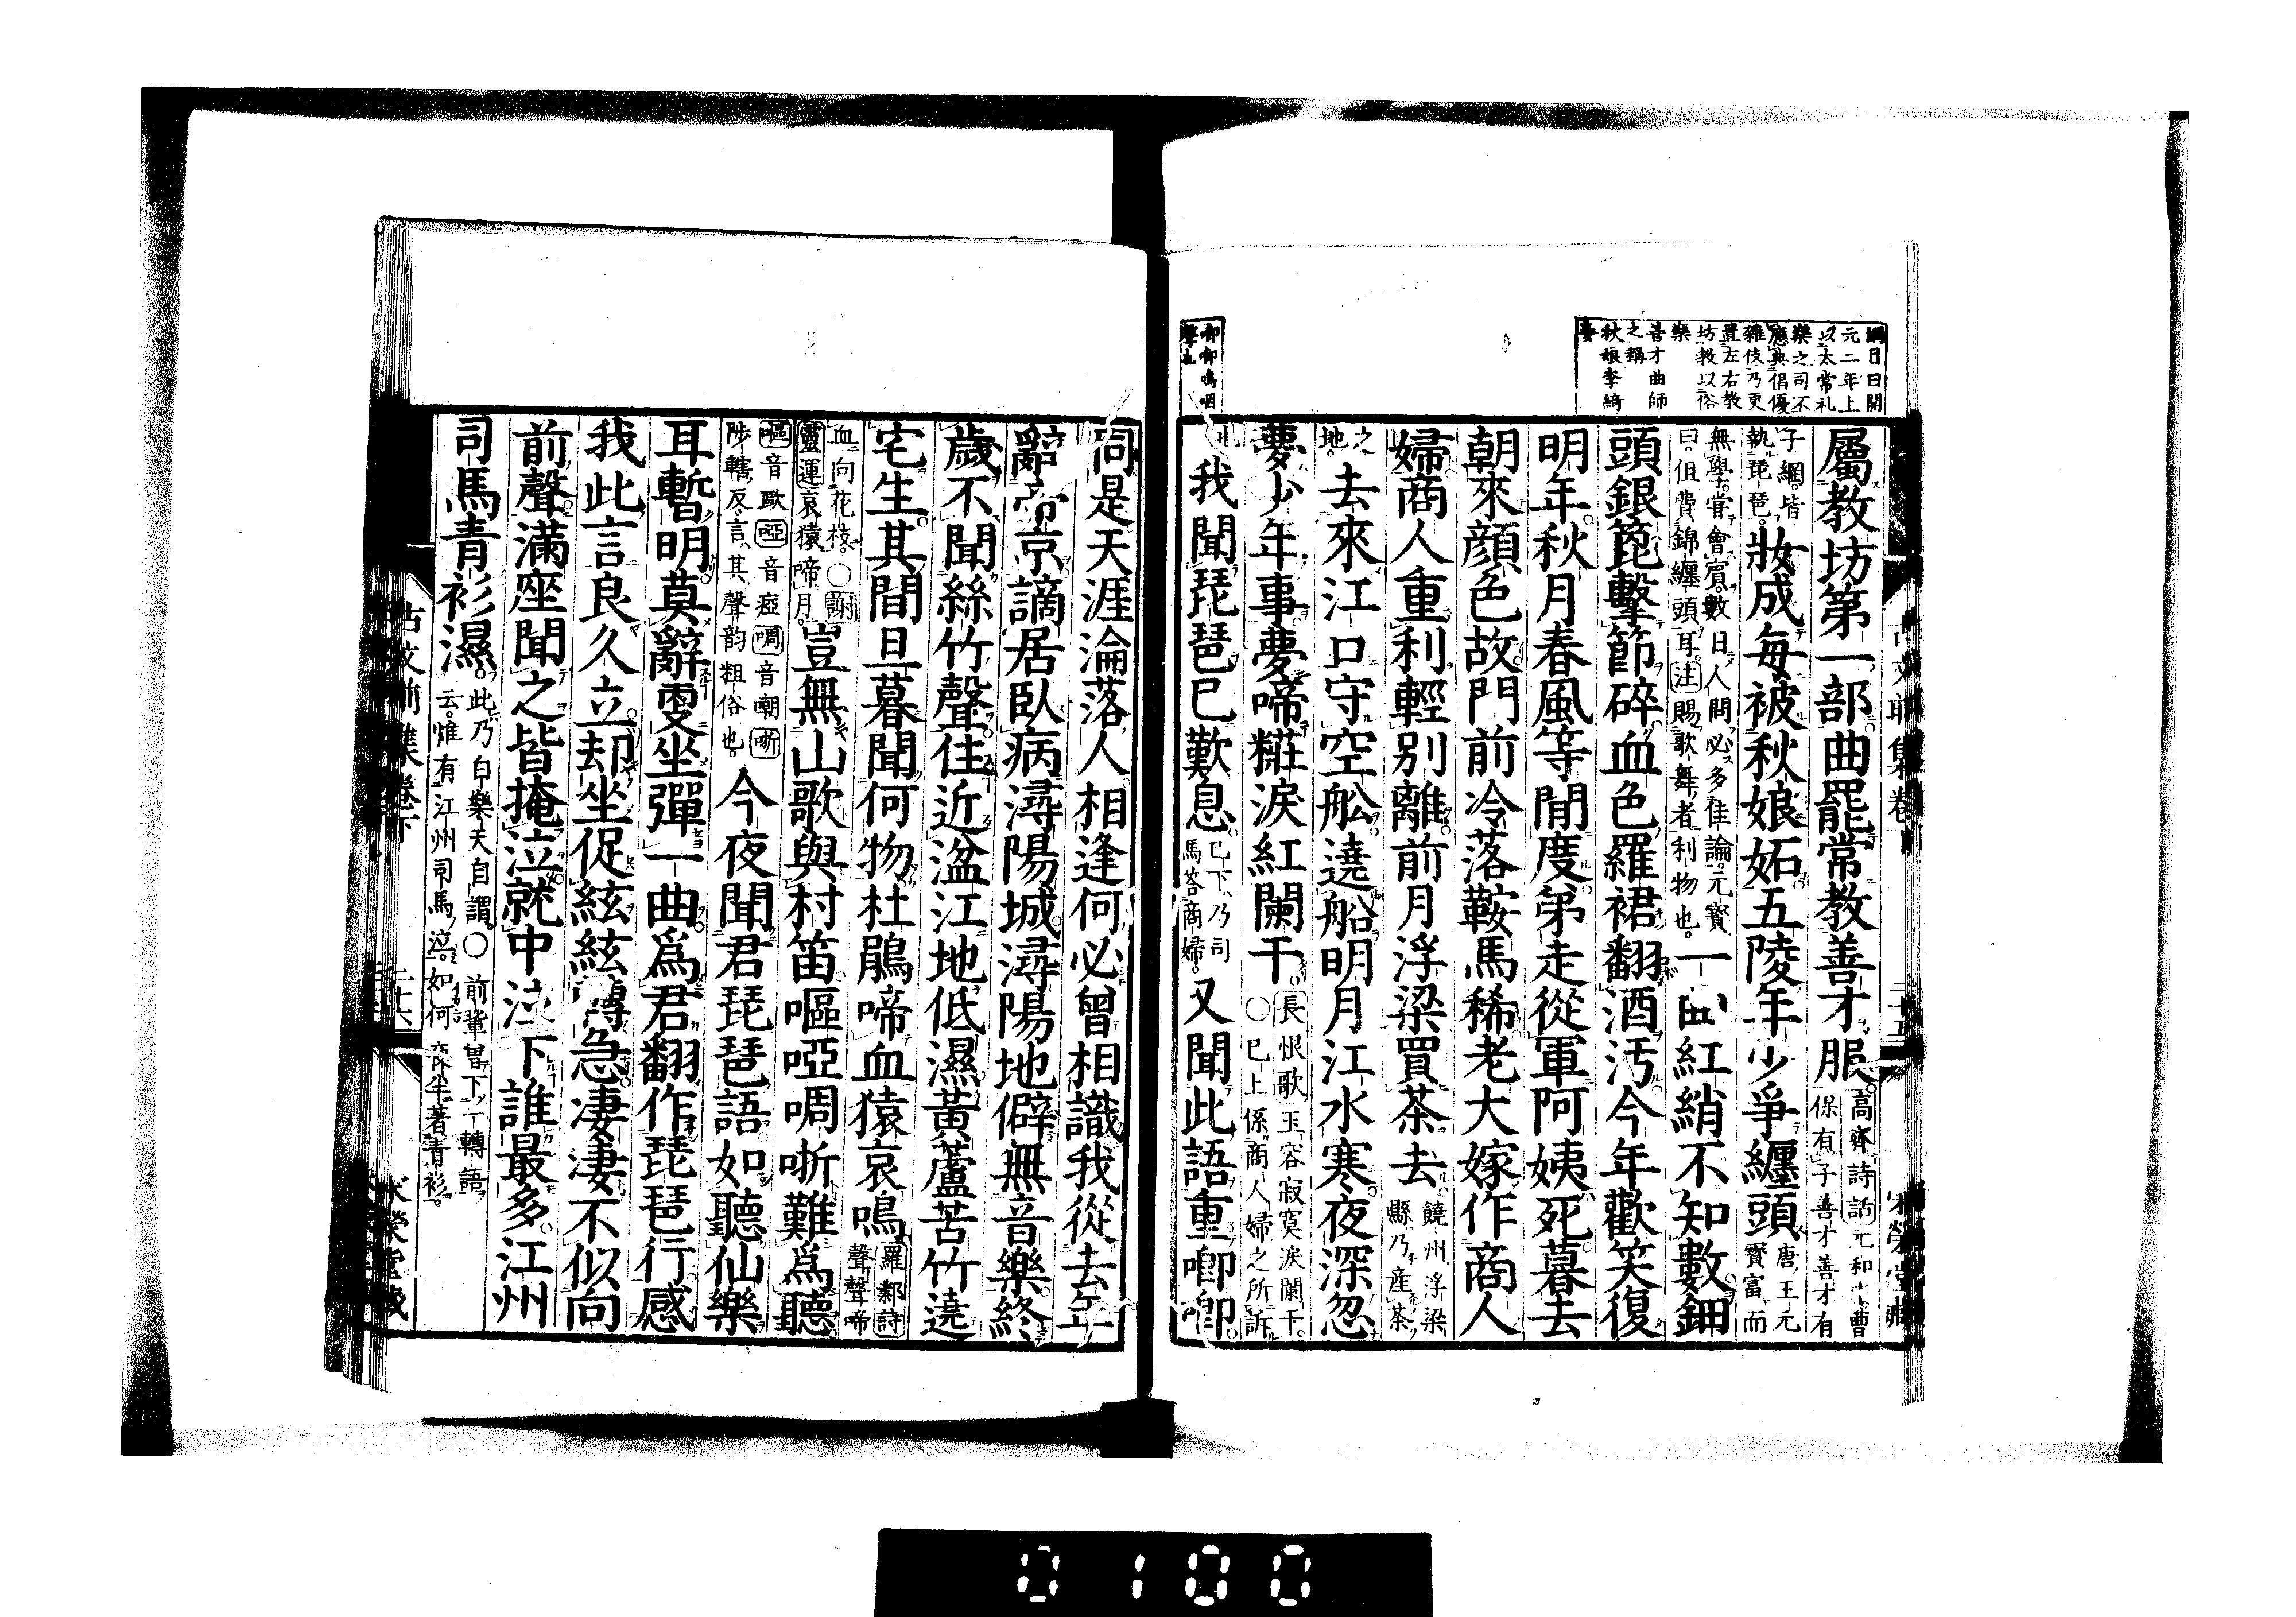 綱目曰開
元二年上
以太常礼
樂之司不
應典倡優
雜伎乃更
置左右教
坊教以俗
樂
善才曲師
之稱
秋娘李綺
妾
屬教坊第一部曲罷常教善才服高齋詩話元和中曹
保有子善才善才有
子綱皆
執琵琶妝成每被秋娘妬五陵年少爭纏頭唐王元
寶富而
無學嘗會賓數日人問必多佳論元寶
曰但費錦纏頭耳注賜歌舞者利物也一曲紅綃不知數鈿
頭銀篦擊節碎血色羅裙翻酒汚今年歡笑復
明年秋月春風等閒度弟走從軍阿姨死暮去
朝來顔色故門前冷落鞍馬稀老大嫁作商人
婦商人重利輕別離前月浮梁買茶去饒州浮梁
縣乃產茶
之
地去來江口守空舩遶船明月江水寒夜深忽
夢少年事夢啼糚淚紅闌干長恨歌玉容寂寞淚闌干
〇已上係商人婦之所訴
我聞琵琶已歎息已下乃司
馬答商婦又聞此語重喞喞
喞喞鳴咽
聲也
同是天涯淪落人相逢何必曾相識我從去年
辭帝京謫居臥病潯陽城潯陽地僻無音樂終
歲不聞絲竹聲住近湓江地低濕黃蘆苦竹遶
宅生其間旦暮聞何物杜鵑啼血猿哀鳴羅鄴詩
聲聲啼
血向花枝〇謝
靈運哀猿啼月豈無山歌與村笛嘔啞啁哳難爲聽
嘔音歐啞音瘂啁音嘲哳
陟轄反言其聲韵粗俗也今夜聞君琵琶語如聽仙樂
耳暫明莫辭更坐彈一曲爲君翻作琵琶行感
我此言良久立却坐促絃絃轉急凄凄不似向
前聲滿座聞之皆掩泣就中泣下誰最多江州
司馬青衫濕此乃白樂天自謂〇前輩曾下一轉語
云惟有江州司馬泣如何夜半著青衫
古文前集卷下 二十六
0100